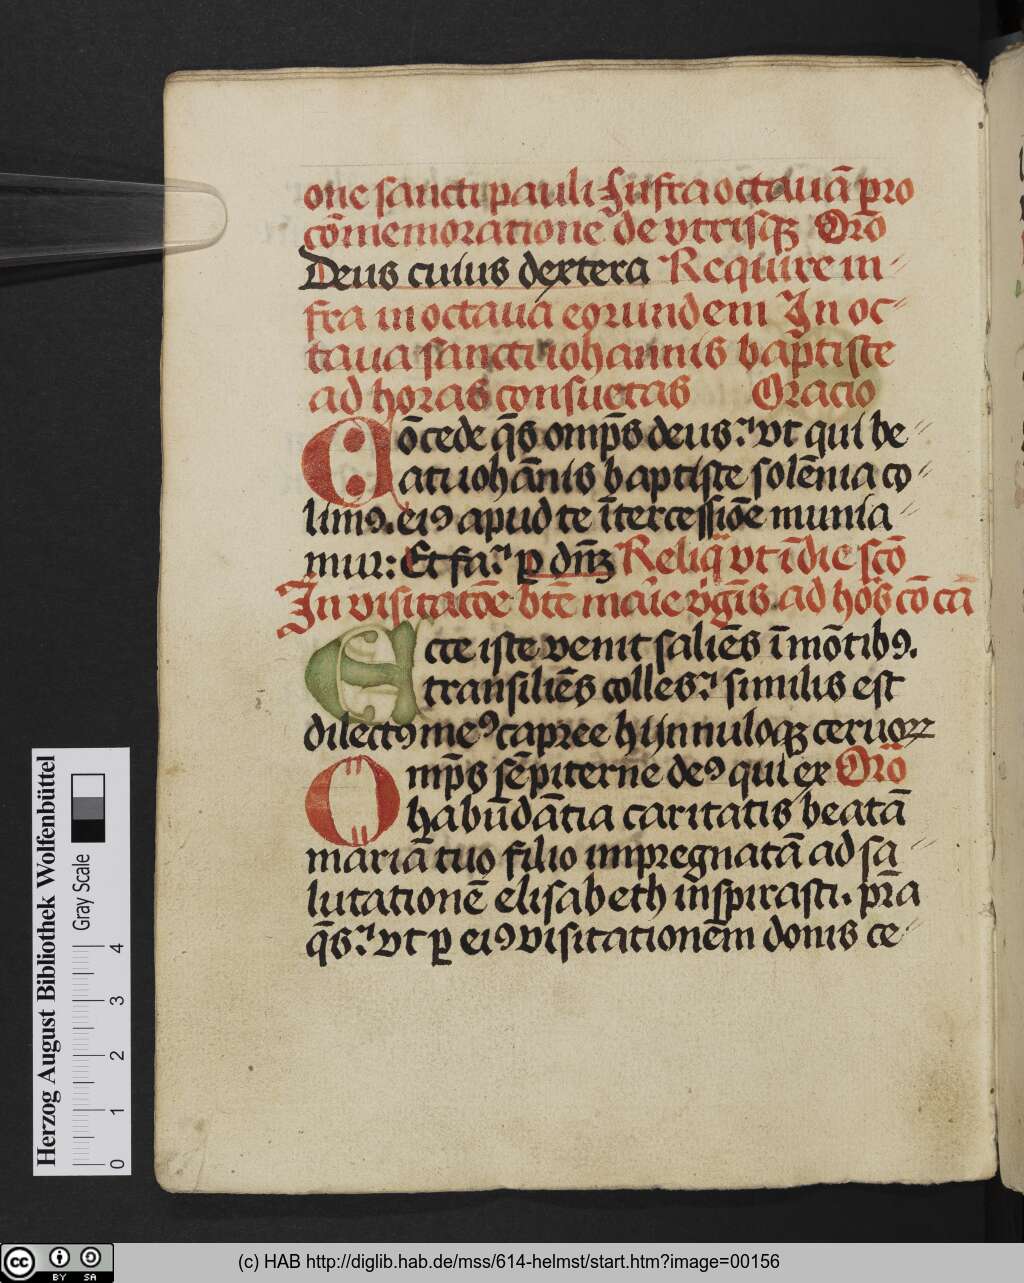 one sancti pauli Infra octauā pro
cōmemoratione de vtrisqꝫ Orō
Deus cuius dextera Require in⸗
fra in octaua eorundem In oc⸗
taua sancti iohannis baptiste
ad horas consuetas Oracio
Cōcede q̄s omp̄s deus: vt qui be⸗
ati iohānis baptiste solēnia co⸗
limꝯ. eiꝯ apud te ītercessiōe munia⸗
mur: Et fa: ꝑ dn̄ꝫ Reliq̄ vt ī die scō
In visitatōe bt̄e maīe v̄gīs ad hōs cō ctā
Ecce iste venit saliēs ī mōtibꝯ.
transiliēs colles: similis est
dilectꝯ meꝯ capree hijnnuloqꝫ ceruoꝝ
Omp̄s sēpiterne deꝯ qui ex Orō
habūdātia caritatis beatā
mariā tuo filio impregnatā ad sa⸗
lutationē elisabeth inspirasti. pr̄a
q̄s: vt ꝑ eiꝯ visitationēm donis ce⸗
Herzog August Bibliothek Wolfenbüttel
Gray Scale
0 1 2 3 4
cc BY SA
(c) HAB http://diglib.hab.de/mss/614-helmst/start.htm?image=00156